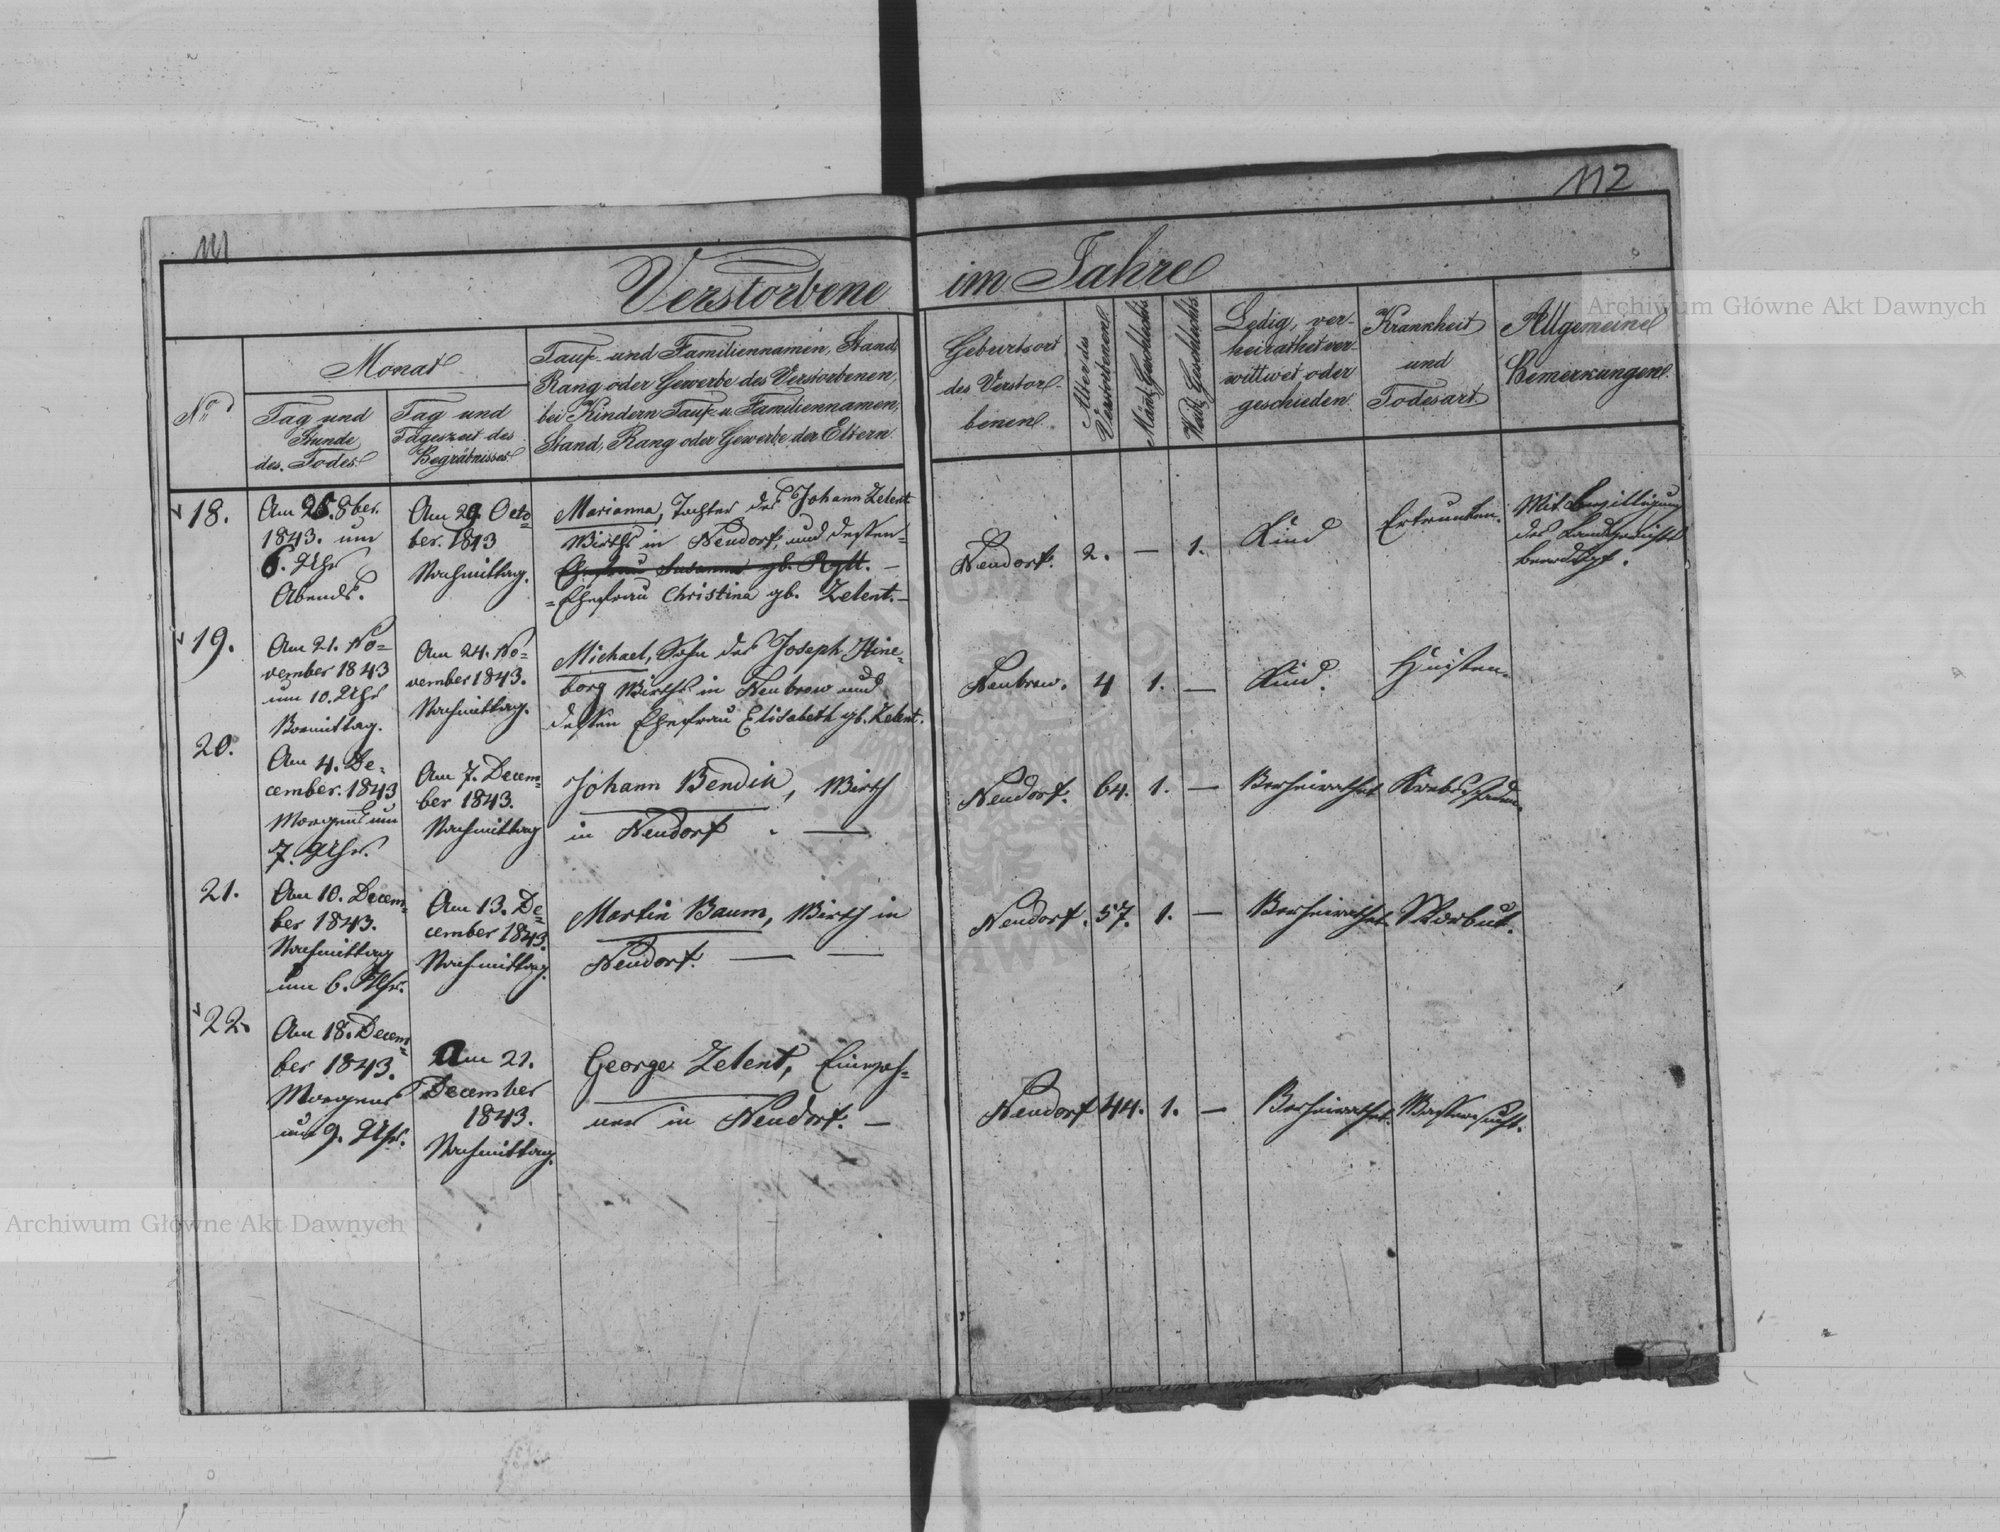 111
112
Verstorbene im Jahre
Archiwum Główne Akt Dawnych
No
Monat
Tag und
Stunde
des Todes
Tag und
Tageszeit des
Begräbnisses
Tauf- und Familiennamen, Stand,
Rang oder Gewerbe des Verstorbenen,
bei Kindern Tauf- u. Familiennamen,
Stand, Rang oder Gewerbe der Eltern
Geburtsort
des Verstor-
benen.
Alter des
Verstorbenen
Männl. Geschlechts
Weibl. Geschlechts
Ledig, ver-
heirathet ver-
wittwet oder
geschieden.
Krankheit
und
Todesart
Allgemeine
Bemerkungen.
18.
Am 8ber.
1843. um
6. Uhr
Abends.
Am 29. Octo=
ber. 1843
Nachmittag.
Marianna, Tochter des Johann Zelent
Wirths in Neudorf, und dessen=
Ehefrau Susanna gb. —
=Ehefrau Christina gb. Zelent.—
Neudorf.
2.
—
1.
Kind
Ertrunken.
Mit Bewilligung
des Landgerichts
beerdigt.
19.
Am 21. No=
vember 1843
um 10. Uhr
Vormittag.
Am 24. No=
vember 1843.
Nachmittag.
Michael, Sohn des Joseph Hine=
borg Wirths in Neubrow und
dessen Ehefrau Elisabeth gb. Zelent.
Neubrow.
4
1.
—
Kind.
Husten.
20.
Am 4. De=
cember. 1843
Morgens um
7. Uhr.
Am 7. Decem=
ber 1843.
Nachmittag
Johann Bendik, Wirth
in Neudorf. —
Neudorf.
64.
1.
—
Verheirathet
Krebsschaden.
21.
Am 10. Decem=
ber 1843.
Nachmittag
um 6. Uhr.
Am 13. De=
cember 1843.
Nachmittag.
Martin Baum, Wirth in
Neudorf. — —
Neudorf.
57.
1.
—
Verheirathet
Skorbut.
22.
Am 18. Decem=
ber 1843.
Morgens
um 9. Uhr.
Am 21.
December
1843.
Nachmittag.
George Zelent, Einwoh=
ner in Neudorf. —
Neudorf
44.
1.
—
Verheirathet.
Wassersucht.
Archiwum Główne Akt Dawnych